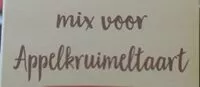 mix voor
Appelkruimeltaart